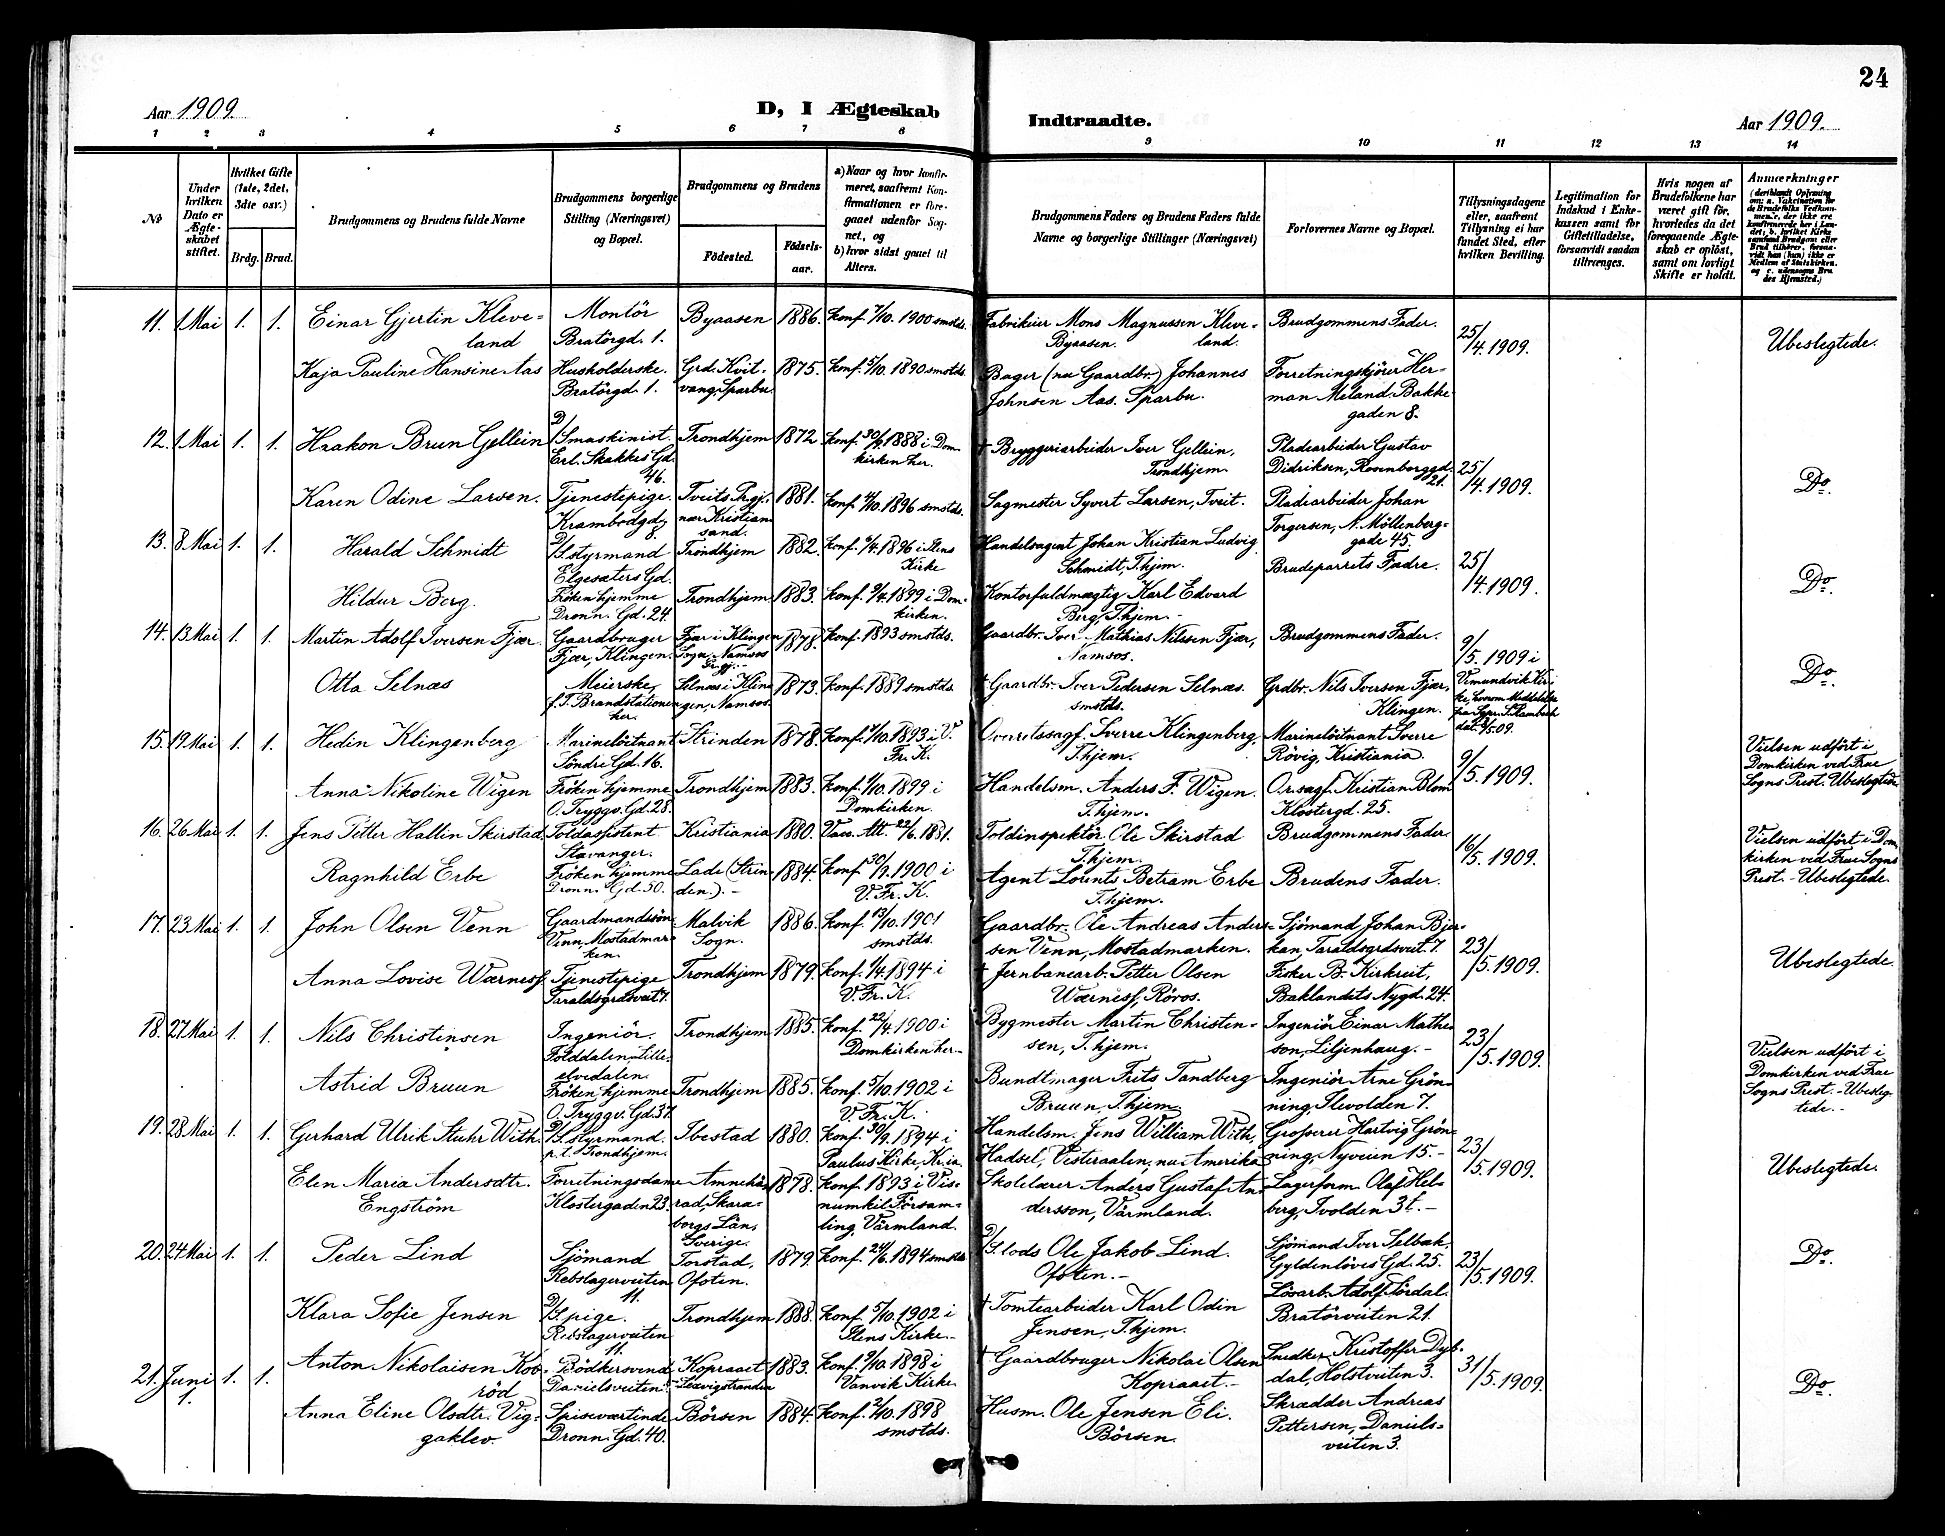 24
Aar 1909. D, I Ægteskab Indtraadte. Aar 1909.
1 2 3 4 5 6 7 8 9 10 11 12 13 14
No
Under hvilken Dato er Ægteskabet stiftet.
Hvilket Gifte (1ste, 2det, 3die osv.)
Brdg. Brud.
Brudgommens og Brudens fulde Navne
Brudgommens borgerlige Stilling (Næringsvei) og Bopæl.
Brudgommens og Brudens
Fødested.
Fødsels-aar.
a) Naar og hvor konfirmeret, saafremt Konfirmationen er foregaaet udenfor Sognet, og
b) hvor sidst gaaet til Alters.
Brudgommens Faders og Brudens Faders fulde Navne og borgerlige Stillinger (Næringsvei)
Forlovernes Navne og Bopæl.
Tillysningsdagene eller, saafremt Tillysning ei har fundet Sted, efter hvilken Bevilling.
Legitimation for Indskud i Enkekassen samt for Giftetilladelse, forsaavidt saadan tiltrænges.
Hvis nogen af Brudefolkene har været gift før, hvorledes da det foregaaende Ægteskab er opløst, samt om lovligt Skifte er holdt.
Anmærkninger
11. 1 Mai 1. 1. Einar Gjertin Kleveland Montör Bratörgd. 1. Byaasen 1886. Konf. 7/10. 1900 smstds. Fabrikeier Mons Magnussen Kleveland. Byaasen. Brudgommens Fader. 25/4. 1909. Ubeslegtede.
Kaja Pauline Hansine Aas Husholderske. Bratörgd. 1. Grd. Kvitvang, Sparbu 1875. Konf. 5/10. 1890 smstds. Bager (nu Gaardbr.) Johannes Johnsen Aas. Sparbu. Forretningskjörer Herman Meland, Bakkegaden 8.
12. 1 Mai 1. 1. Haakon Brun Gellein D/Smaskinist. Erl. Skakkes Gd. 46. Trondhjem 1872 Konf. 30/9. 1888 i Domkirken her. † Bryggeriarbeider Iver Gellein, Trondhjem. Pladearbeider Gustav Didriksen, Rosenborggd. 21. 25/4. 1909. Do.
Karen Odine Larsen. Tjenestepige. Krambodgd. 8. Tveits Prgj. nær Kristiansand. 1881. Konf. 4/10. 1896 smstds. Sagmester Syvert Larsen, Tveit. Pladearbeider Johan Torgersen, N. Möllenberggade 45.
13. 8 Mai 1. 1. Harald Schmidt D/Sstyrmand Elgesæters Gd. Trondhjem 1882. Konf. /4. 1896 i Ilens Kirke Handelsagent Johan Kristian Ludvig Schmidt, T.hjem. Brudeparrets Fædre. 25/4. 1909. Do.
Hildur Berg. Fröken hjemme Dronn. Gd. 24. Trondhjem 1883. Konf. 9/4. 1899 i Domkirken. Kontorfuldmægtig Karl Edvard Berg, T.hjem.
14. 13 Mai 1. 1. Martin Adolf Iversen Fjær. Gaardbruger Fjær, Klingen. Fjær i Klingen Sogn, Namsos Prgj. 1878. Konf. 1893 smstds. Gaardbr. Iver Mathias Nilssen Fjær, Namsos. Brudgommens Fader. 9/5. 1909 i Vemundvik Kirke, hvorom Meddelelse fra Spr. S. Rambech dat. /5.09. Do.
Otta Selnæs Meierske, f. T. Brandstationen her. Selnæs i Klingen, Namsos. 1873. Konf. 1889 smstds. † Gaardbr. Iver Pedersen Selnæs. smstds. Grdbr. Nils Iversen Fjær, Klingen.
15. 19 Mai 1. 1. Hedin Klingenberg Marinelöitnant Söndre Gd. 16. Strinden 1878. Konf. /10. 1893 i V. Fr. K. Overretssagf. Sverre Klingenberg, T.hjem. Marinelöitnant Sverre Rövig, Kristiania. 9/5. 1909. Vielsen udfört i Domkirken ved Frue Sogns Prest. Ubeslegtede
Anna Nikoline Wigen Fröken hjemme O. Tryggv. Gd. 28. Trondhjem 1883. Konf. 1/10. 1899 i Domkirken. Handelsm. Anders F. Wigen. T.hjem. O.r.sagf. Kristian Blom Klostergd. 25.
16. 26 Mai 1. 1. Jens Petter Hallin Skirstad Toldassistent Stavanger. Kristiania 1880. Vacc. Att. 22/6. 1881. Toldinspektör Ole Skirstad T.hjem. Brudgommens Fader. 16/5. 1909. Vielsen udfört i Domkirken ved Frue Sogns Prest. - Ubeslegtede.
Ragnhild Erbe Fröken hjemme Dronn. Gd. 50. Lade (Strinden). - 1884. Konf. 30/9. 1900 i V. Fr. K. Agent Lorents Betram Erbe T.hjem. Brudens Fader.
17. 23 Mai 1. 1. John Olsen Venn Gaardmandssön Venn, Mostadmarken. Malvik Sogn. 1886. Konf. 13/10. 1901 smstds. Gaardbr. Ole Andreas Andersen Venn, Mostadmarken. Sjömand Johan Bjerkan, Taraldsgrdsveit 7. 23/5. 1909. Ubeslegtede.
Anna Lovise Wærness. Tjenestepige Taraldsgrdsveit 7. Trondhjem 1879. Konf. 1/4. 1894 i V. Fr. K. † Jernbanearb. Petter Olsen Wærness, Röros. Fisker B. Kirkreit, Baklandets Nygd. 24.
18. 27 Mai 1. 1. Nils Christensen Ingeniör. Folddalen, Lilleelvedalen. Trondhjem 1885. Konf. 22/4. 1900 i Domkirken her. - Bygmester Martin Christensen, T.hjem. Ingeniör Einar Mathesson, Liljenhaug. - 23/5. 1909. Vielsen udfört i Domkirken ved Frue Sogns Prest. - Ubeslegtede. -
Astrid Bruun Fröken hjemme O. Tryggv. Gd. 37. Trondhjem 1885. Konf. 5/10. 1902 i V. Fr. K. Bundtmager Frits Tandberg Bruun, T.hjem. Ingeniör Arne Grönning, Ilevolden 7.
19. 28 Mai 1. 1. Gerhard Ulrik Stuhr With. D/S.styrmand. p.t. Trondhjem. Ibestad 1880. Konf. 30/9. 1894 i Paulus Kirke, Kr.ia. Handelsm. Jens William With, Hadsel, Vesteraalen, nu Amerika. Grosserer Hartvig Grönning, Nyveien 15. - 23/5. 1909. Ubeslegtede.
Elen Maria Andersdtr. Engström Forretningsdame Klostergaden 23. Amnehärad, Skaraborgs Län, Sverige. 1878. Konf. 1893 i Visnumkil Församling, Värmland. Skolelærer Anders Gustaf Andersson, Värmland. Lagerform. Olaf Helberg, Ivolden 3t. -
20. 24 Mai 1. 1. Peder Lind Sjömand Rebslagerveiten 11. Torstad, Ofoten. 1879. Konf. 24/6. 1894 smstds. D/S.lods Ole Jakob Lind. Ofoten. - Sjömand Iver Selbæk, Gyldenlöves Gd. 25. 23/5. 1909. Do.
Klara Sofie Jensen D/S.pige. Rebslagerveiten 11. Trondhjem 1888. Konf. 5/10. 1902 i Ilens Kirke. - † Tomtearbeider Karl Odin Jensen, T.hjem. Lösarb. Adolf Tördal. Bratörveiten 21.
21. Juni 1. 1. 1. Anton Nikolaisen Kobröd Bödkersvend Danielsveiten. Kopraaet Lexvigstranden 1883. Konf. 9/10. 1898 i Vanvik Kirke † Gaardbruger Nikolai Olsen Kopraaet. - Snedker Kristoffer Dybdal, Holstveiten 3. 31/5. 1909. Do.
Anna Eline Olsdtr. Viggaklev Spiseværtinde Dronn. Gd. 40. Börsen 1884. Konf. 2/10. 1898 smstds. Husm. Ole Jensen Eli. Börsen. Skrædder Andreas Pettersen, Danielsveiten 3.